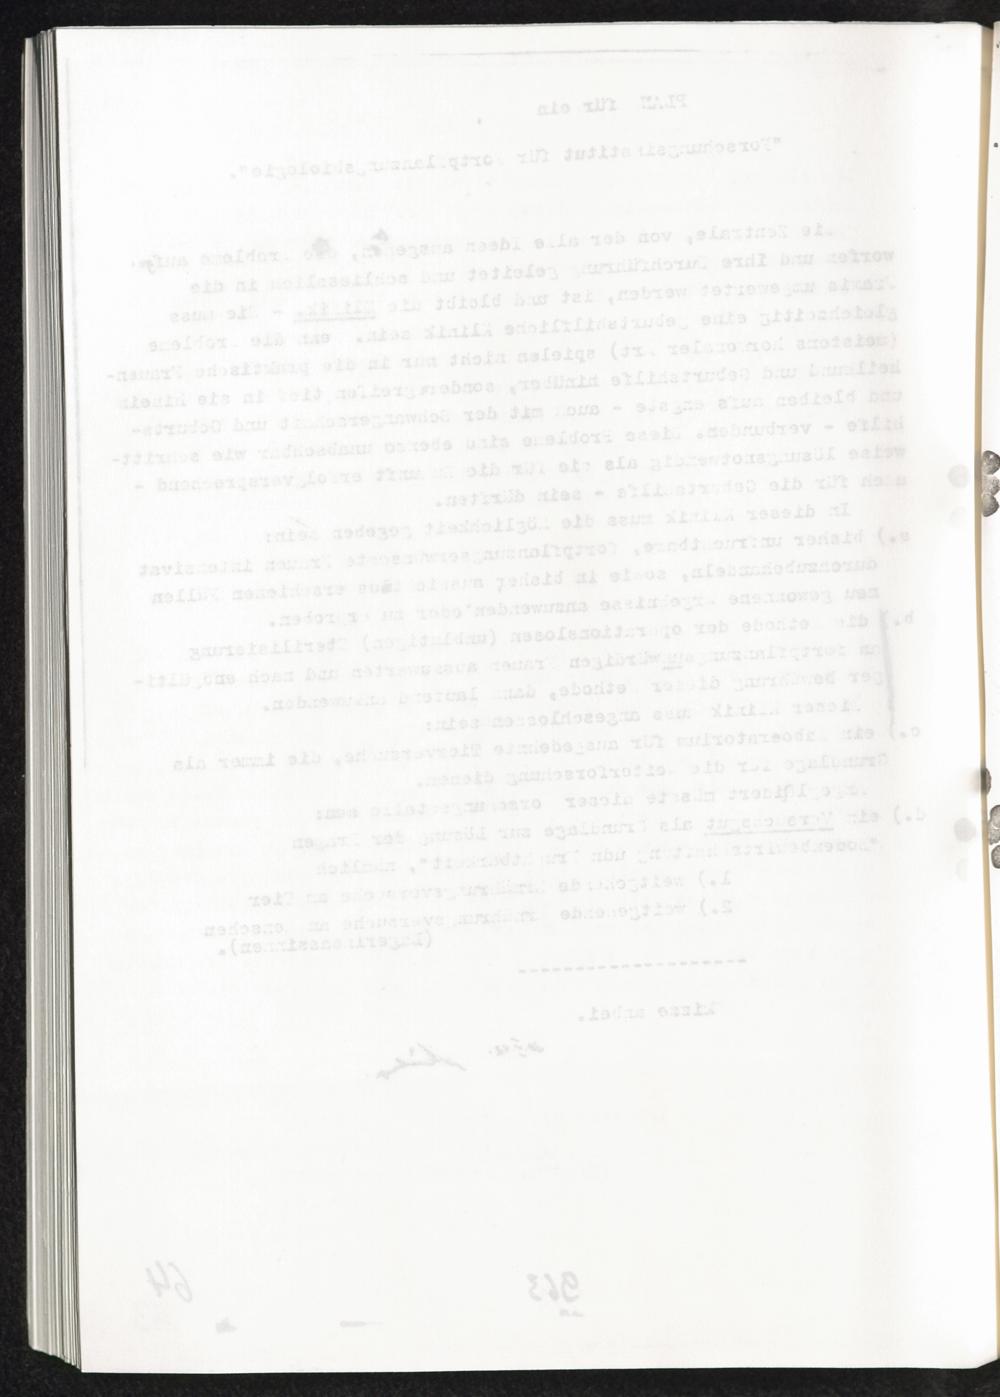 PLAN für ein
"Forschungsinstitut für Fortpflanzungsbiologie".
Die Zentrale, von der alle Ideen ausgehen, die Probleme aufge-
worfen und ihre Durchführung geleitet und schliesslich in die
Praxis umgewertet werden, ist und bleibt die Klinik. - Sie muss
gleichzeitig eine geburtshilfliche Klinik sein. Denn die Probleme
(meistens hormonaler Art) spielen nicht nur in die praktische Frauen-
heilkund und Geburtshilfe hinüber, sondern greifen tief in sie hinein
und bleiben aufs engste - auch mit der Schwangerschaft und Geburts-
hilfe - verbunden. Diese Probleme sind ebenso unabsehbar wie schritt-
weise lösungsnotwendig als sie für die Zukunft erfolgversprechend -
auch für die Geburtshilfe - sein dürften.
In dieser Klinik muss die Möglichkeit gegeben sein:
a.) bisher unfruchtbare, fortpflanzungserwünschte Frauen intensivst
durchzubehandeln, sowie in bisher aussichtslos erschienen Fällen
neu gewonnene Ergebnisse anzuwenden oder zu erproben.
b.) die Methode der operationslosen (unblutigen) Sterilisierung
an fortpflanzungsunwürdigen Frauen auszuwerten und nach endgülti-
ger Bewährung dieser Methode, dann laufend anzuwenden.
Dieser Klinik muss angeschlossen sein:
c.) ein Laboratorium für ausgedehnte Tierversuche, die immer als
Grundlage für die Weiterforschung dienen.
Angegliedert müsste dieser
d.) ein Versuchsgut als Grundlage zur Lösung der Fragen
"Bodenbewirtschaftung udn Fruchtbarkeit", nämlich
1.) weitgehende Ernährungsversuche am Tier
2.) weitgehende Ernährungsversuche am Menschen
(Lagerinsassinnen).
--------------------
Skizze anbei.
963
64